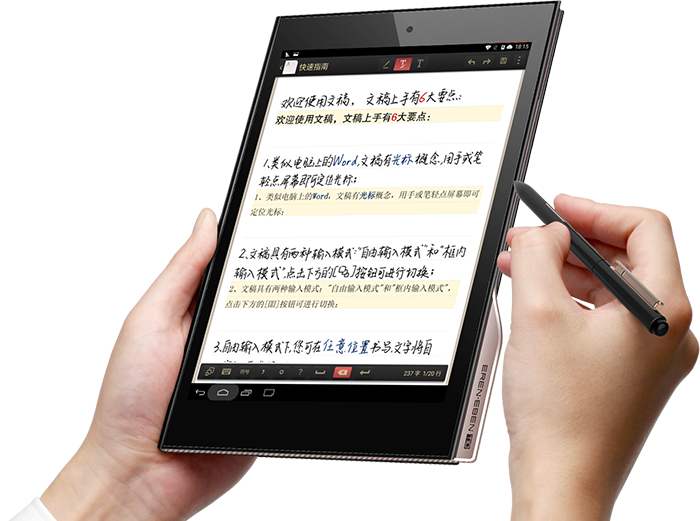 18:15
快速指南
T T
欢迎使用文稿，文稿上手有6大要点：
欢迎使用文稿，文稿上手有6大要点：
1、类似电脑上的Word,文稿有光标概念,用手或笔
轻点屏幕即可定位光标；
1、类似电脑上的Word，文稿有光标概念，用手或笔轻点屏幕即可
定位光标；
2、文稿具有两种输入模式："自由输入模式"和"框内
输入模式",点击下方的[]按钮可进行切换；
2、文稿具有两种输入模式："自由输入模式"和"框内输入模式"，
点击下方的[]按钮可进行切换；
3、自由输入模式下,您可在任意位置书写,文字将自
符号 ， 。 ? 237 字 1/20 行
EREN·EBEN T9